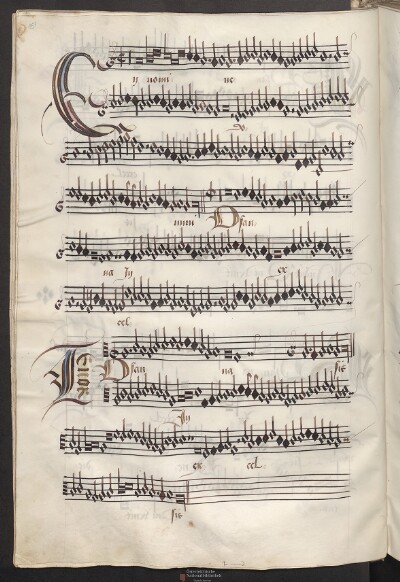 n nomi ne
Do
mini Osan
na In ex
cel
Tenor Osan na sis
In
ex cel
sis
Österreichische
Nationalbibliothek